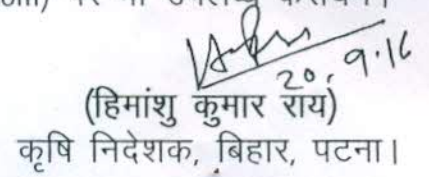 पर भी उपलब्ध
20.9.16
(हिमांशु कुमार राय)
कृषि निदेशक, बिहार, पटना।